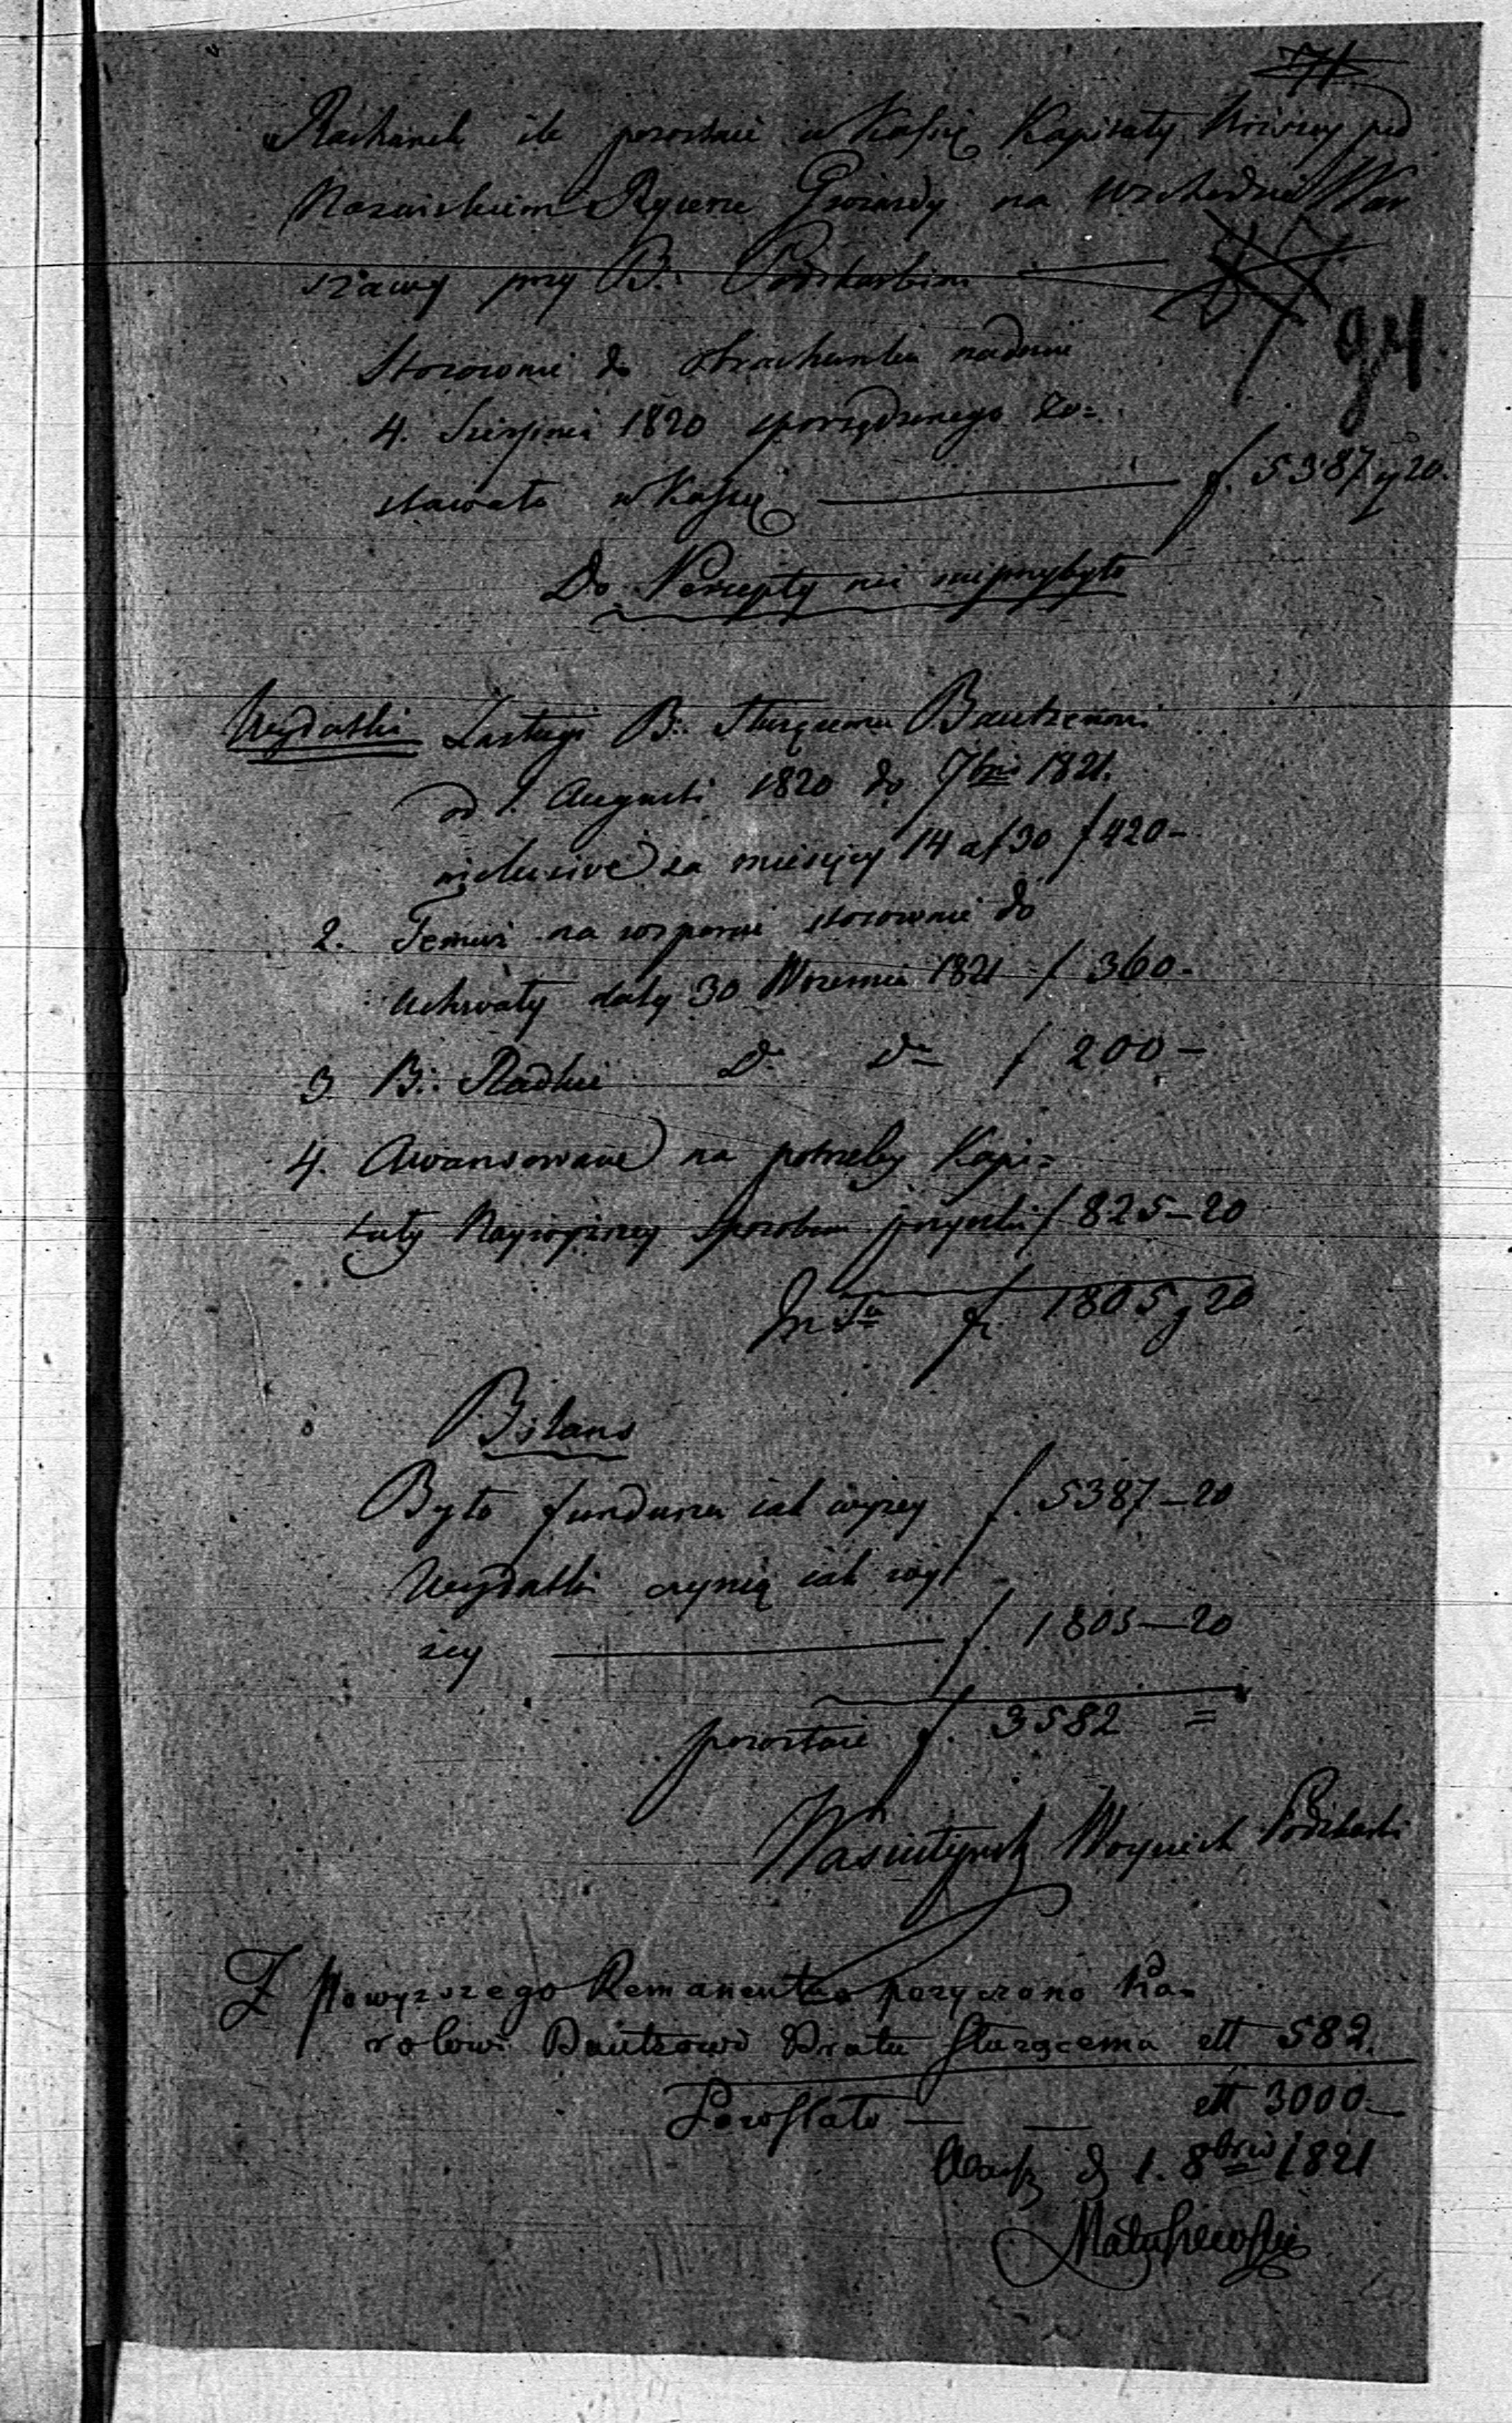 Rachunek ile pozostaie w Kassie Kapituły Niższey pod
Nazwiskiem Rycerze Gwiazdy na Wschodzie War
szawy przy B∴ Podskarbim
94.
Stosownie do obrachunku na dniu
4. Sierpnia 1820 sporządzonego zo=
stawało w Kassie f. 5387 g 20.
Do Percepty nic nie przybyło
Wydatki Zasługi B∴ Służącemu Bautzenowi
od 1. Augusti 1820 do 7bris 1821.
inclusive za miesięcy 14 a f 30 f 420 –
2. Temuż na wsparcie stosownie do
uchwały daty 30 Wrzesnia 1821 f 360 –
3. B∴ Radkie d° d° f 200 –
4. Awansowane na potrzeby Kapi=
tuły Naywyższey sposobem pożyczki f 825 – 20
In Sa f. 1805 g 20
Bilans
Było funduszu iak wyżey f. 5387 – 20
Wydatki czynią iak wyż
żey f. 1805 – 20
pozostaie f. 3582 =
Wasiutyński Woyciech Podskarbi
Z Powyższego Remanentu pożyczono Ka=
rolowi Bautzowi Bratu Służącemu 582.
Pozostało — — 3000 –
Warsz d 1. 8bris 1821
Matuszewski